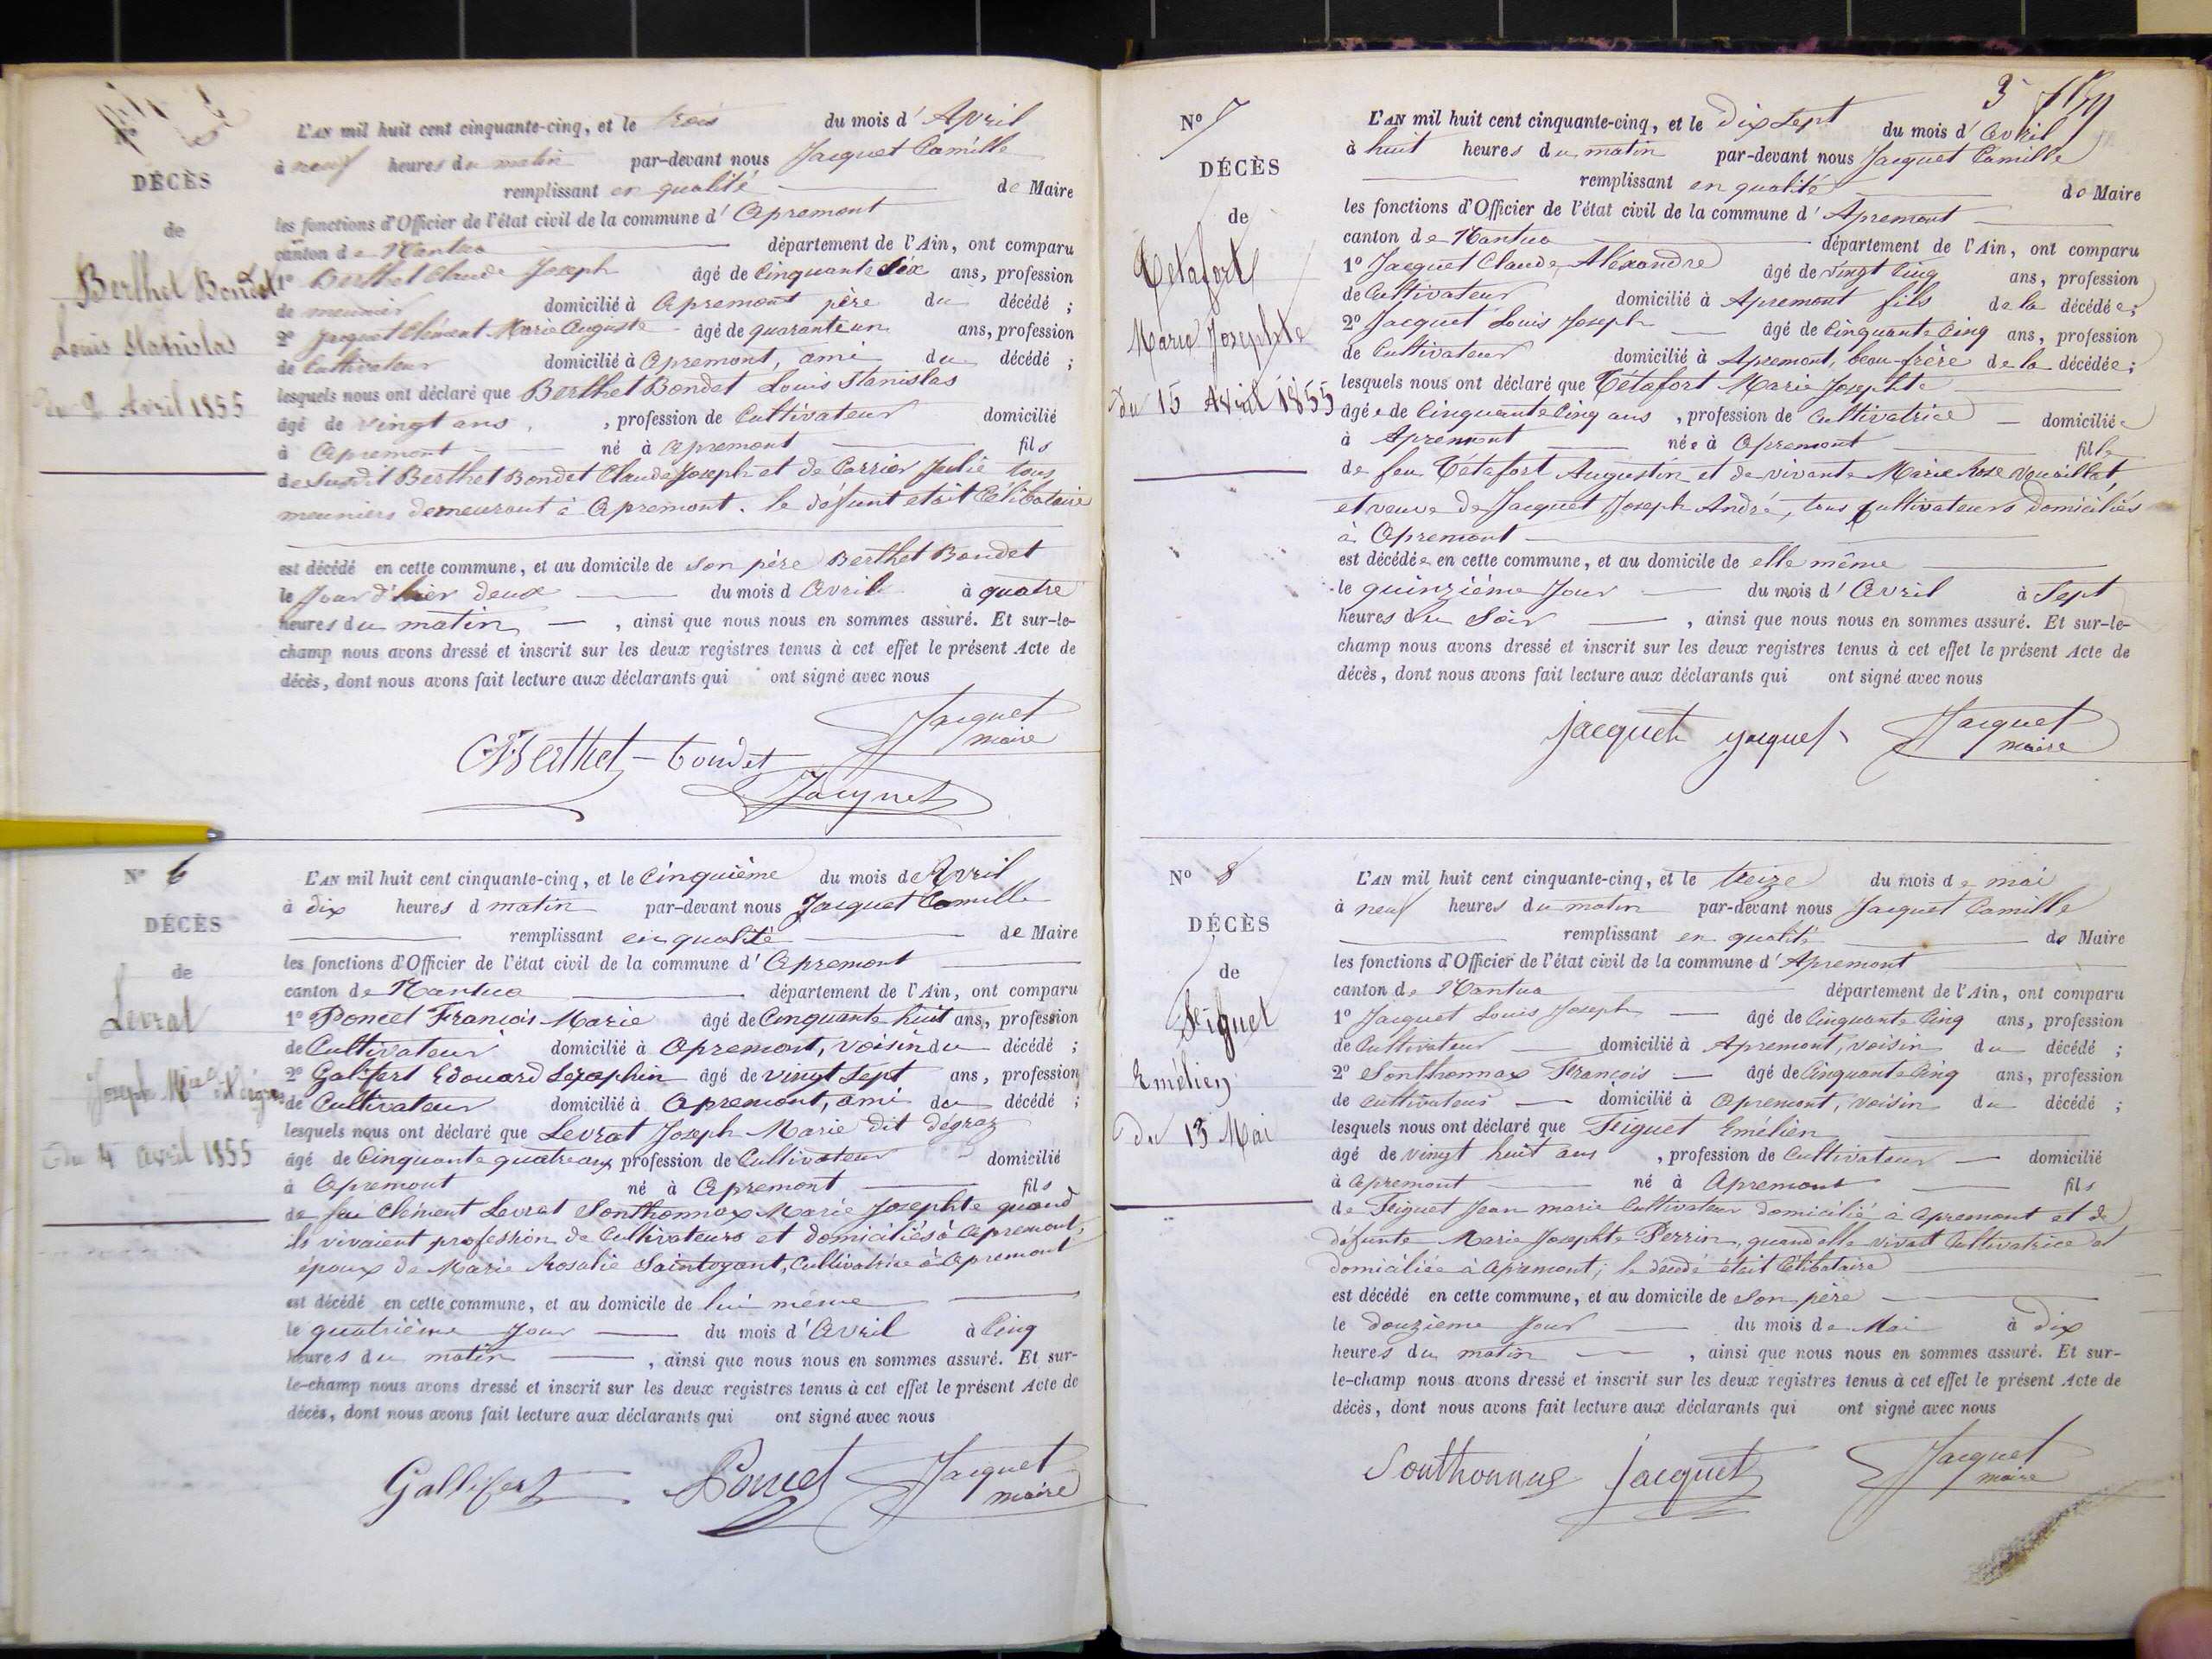 DÉCÈS
de
Berthet Bondet
Louis Stanislas
du 2 Avril 1855
L'AN mil huit cent cinquante-cinq, et le trois du mois d'Avril
à neuf heures du matin par-devant nous Jacquet Camille
remplissant en qualité de Maire
les fonctions d'Officier de l'état civil de la commune d'Apremont
canton de Nantua département de l'Ain, ont comparu
1º Berthet Claude Joseph âgé de Cinquante Six ans, profession
de meunier domicilié à Apremont père du décédé ;
2º Jacquet Clément Marie Auguste âgé de quarante un ans, profession
de Cultivateur domicilié à Apremont, ami du décédé ;
lesquels nous ont déclaré que Berthet Bondet Louis Stanislas
âgé de vingt ans, profession de Cultivateur domicilié
à Apremont né à Apremont fils
de Susdit Berthet Bondet Claude Joseph et de Carrier Julie tous
meuniers demeurant à Apremont. le défunt etait Célibataire
est décédé en cette commune, et au domicile de son père Berthet Bondet
le Jour d'hier deux du mois d Avril à quatre
heures du matin, ainsi que nous nous en sommes assuré. Et sur-le-
champ nous avons dressé et inscrit sur les deux registres tenus à cet effet le présent Acte de
décès, dont nous avons fait lecture aux déclarants qui ont signé avec nous
Jacquet
maire
Berthet-bondet
Jacquet
Nº 6
DÉCÈS
de
Levrat
Joseph Mie dit Dégraz
du 4 Avril 1855
L'AN mil huit cent cinquante-cinq, et le Cinquième du mois de Avril
à dix heures d matin par-devant nous Jacquet Camille
remplissant en qualité de Maire
les fonctions d'Officier de l'état civil de la commune d'Apremont
canton de Nantua département de l'Ain, ont comparu
1º Poncet François Marie âgé de Cinquante huit ans, profession
de Cultivateur domicilié à Apremont, voisin du décédé ;
2º Galifert Edouard Séraphin âgé de vingt Sept ans, profession
de Cultivateur domicilié à Apremont, ami du décédé ;
lesquels nous ont déclaré que Levrat Joseph Marie dit dégraz
âgé de Cinquante quatre ans profession de Cultivateur domicilié
à Apremont né à Apremont fils
de feu Clément Levrat Sonthonnax Marie Josephte quand
ils vivaient profession de Cultivateurs et domiciliés à Apremont,
époux de Marie Rosalie Saintoyant, Cultivatrice à Apremont
est décédé en cette commune, et au domicile de lui même
le quatrième jour du mois d'Avril à Cinq
heures du matin, ainsi que nous nous en sommes assuré. Et sur-
le-champ nous avons dressé et inscrit sur les deux registres tenus à cet effet le présent Acte de
décès, dont nous avons fait lecture aux déclarants qui ont signé avec nous
Gallifert Poncet Jacquet
maire
3
Nº 7
DÉCÈS
de
Tétafort
Marie Josephte
du 15 Avril 1855
L'AN mil huit cent cinquante-cinq, et le Dix Sept du mois d'Avril
à huit heures du matin par-devant nous Jacquet Camille
remplissant en qualité de Maire
les fonctions d'Officier de l'état civil de la commune d'Apremont
canton de Nantua département de l'Ain, ont comparu
1º Jacquet Claude Alexandre âgé de vingt Cinq ans, profession
de Cultivateur domicilié à Apremont fils de la décédée ;
2º Jacquet Louis Joseph âgé de Cinquante Cinq ans, profession
de Cultivateur domicilié à Apremont, beau-frère de la décédée ;
lesquels nous ont déclaré que Tétafort Marie Josephte
âgée de Cinquante Cinq ans, profession de Cultivatrice domiciliée
à Apremont née à Apremont fille
de feu Tétafort Augustin et de vivante Marie Rose Vouaillat,
et veuve de Jacquet Joseph André, tous Cultivateurs Domiciliés
à Apremont
est décédée en cette commune, et au domicile de elle même
le quinzième Jour du mois d'Avril à Sept
heures du Soir, ainsi que nous nous en sommes assuré. Et sur-le-
champ nous avons dressé et inscrit sur les deux registres tenus à cet effet le présent Acte de
décès, dont nous avons fait lecture aux déclarants qui ont signé avec nous
jacquet jacquet Jacquet
maire
Nº 8
DÉCÈS
de
Féiguet
Emélien
du 13 Mai
L'AN mil huit cent cinquante-cinq, et le treize du mois de mai
à neuf heures du matin par-devant nous Jacquet Camille
remplissant en qualité de Maire
les fonctions d'Officier de l'état civil de la commune d'Apremont
canton de Nantua département de l'Ain, ont comparu
1º Jacquet Louis Joseph âgé de Cinquante Cinq ans, profession
de Cultivateur domicilié à Apremont, voisin du décédé ;
2º Sonthonnax François âgé de Cinquante Cinq ans, profession
de Cultivateur domicilié à Apremont, voisin du décédé ;
lesquels nous ont déclaré que Féiguet Emélien
âgé de vingt huit ans, profession de Cultivateur domicilié
à Apremont né à Apremont fils
de Féiguet Jean marie Cultivateur domicilié à Apremont et de
défunte Marie Josephte Perrin, quand elle vivait Cultivatrice et
domiciliée à Apremont ; le décédé était Célibataire
est décédé en cette commune, et au domicile de Son père
le douzième Jour du mois de Mai à dix
heures du matin, ainsi que nous nous en sommes assuré. Et sur-
le-champ nous avons dressé et inscrit sur les deux registres tenus à cet effet le présent Acte de
décès, dont nous avons fait lecture aux déclarants qui ont signé avec nous
Sonthonnax jacquet Jacquet
maire